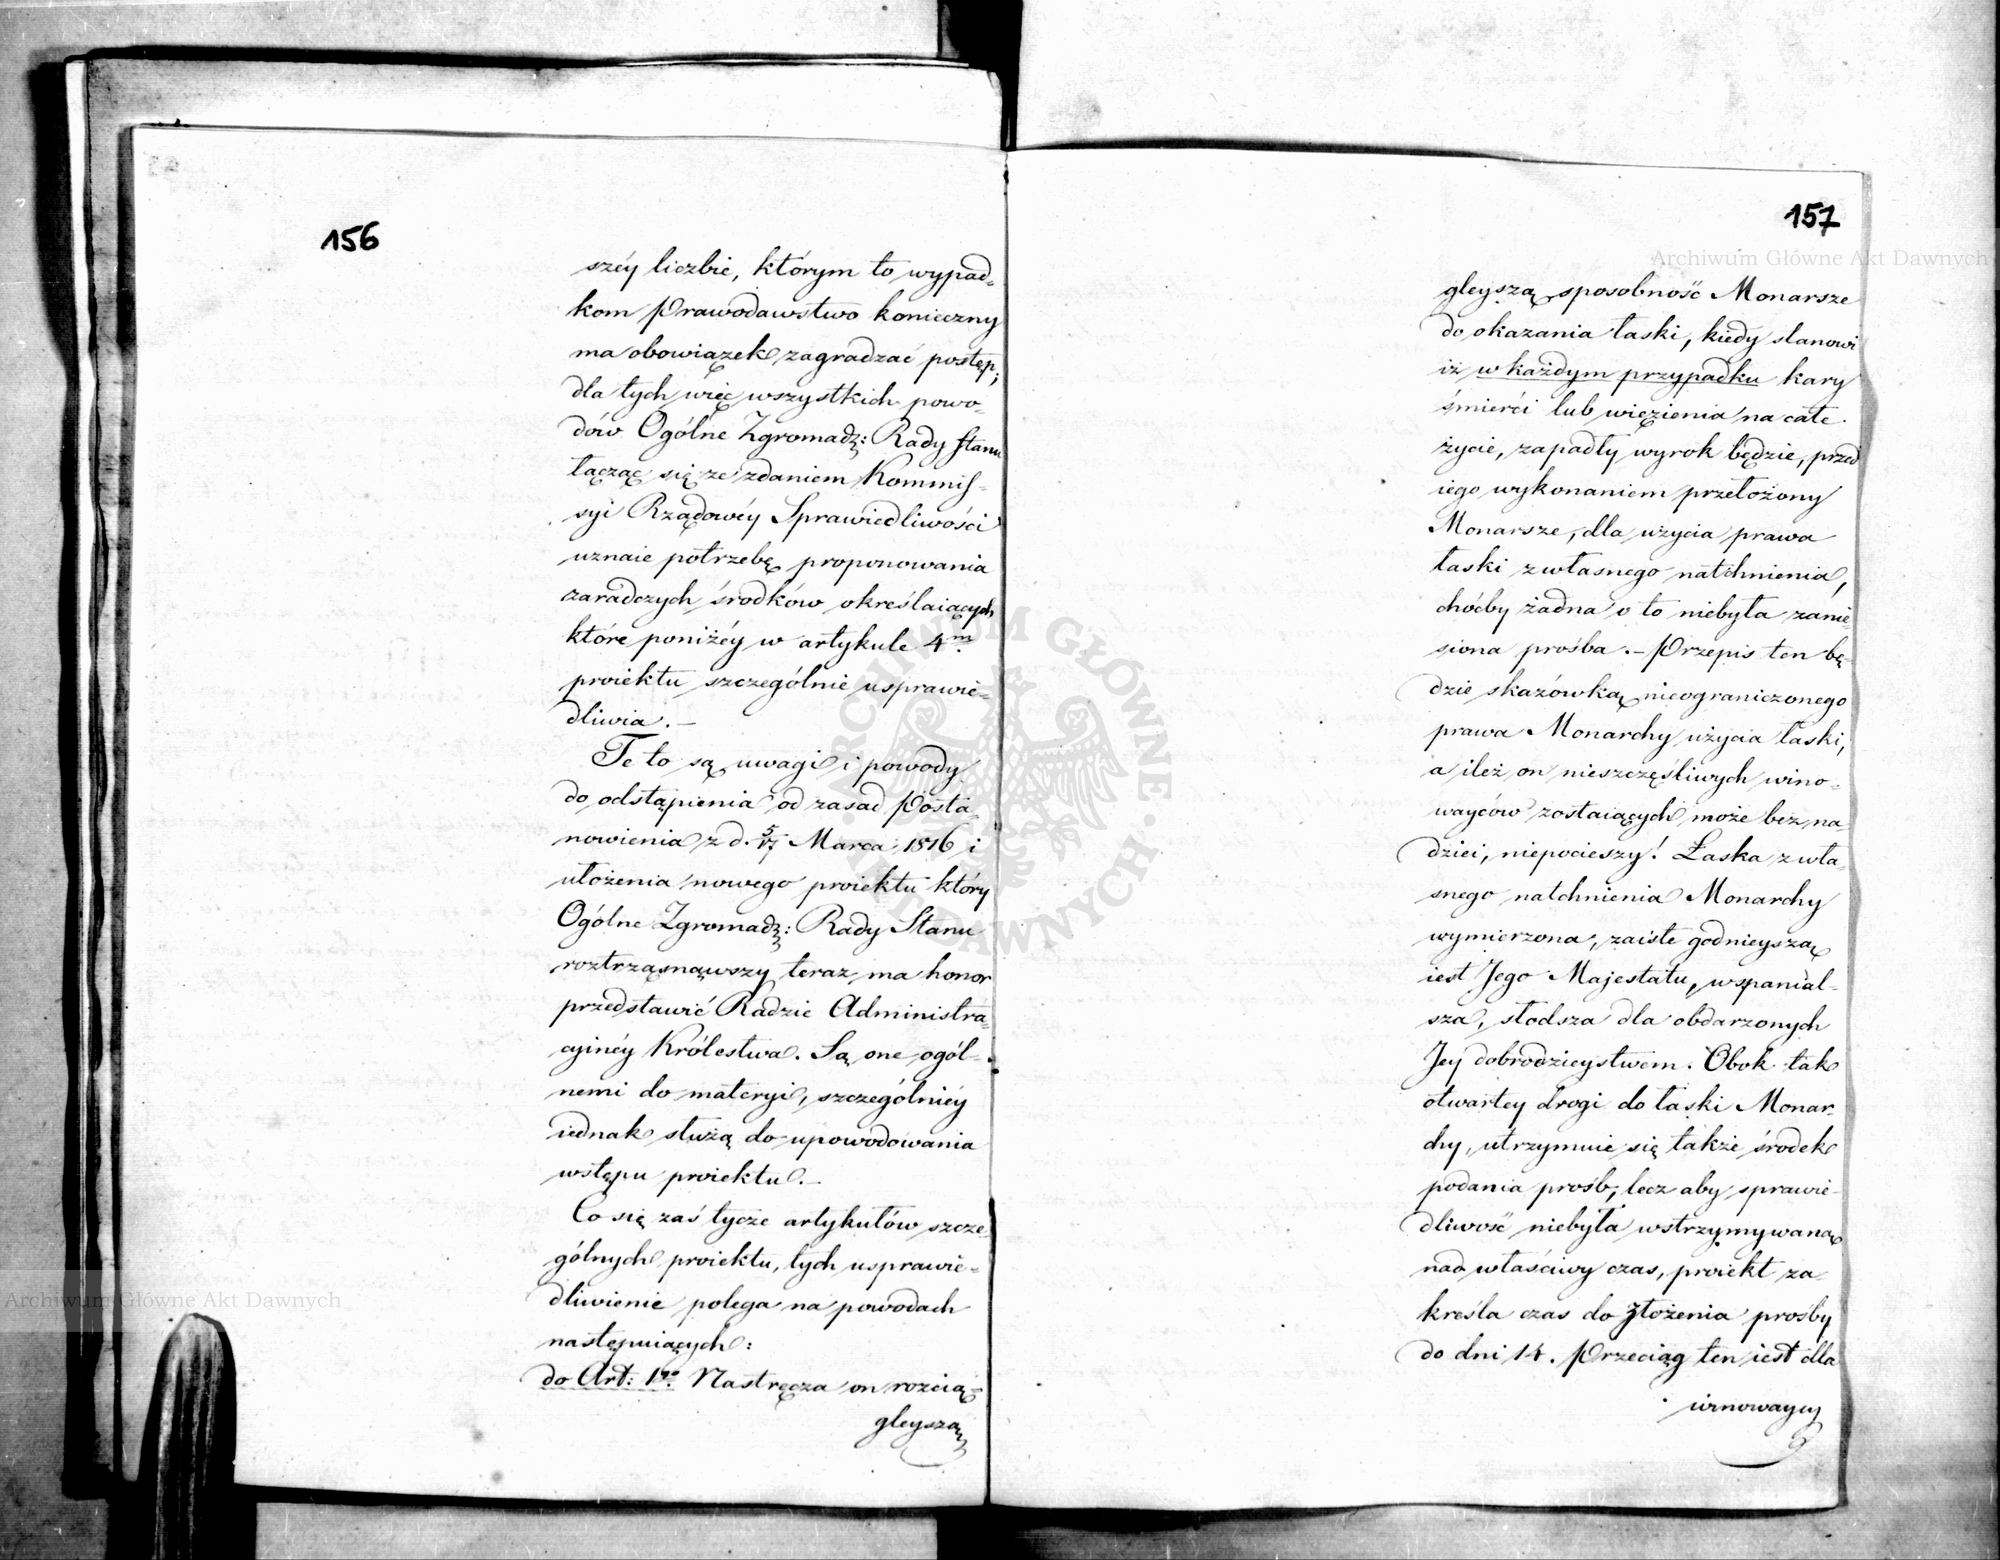 156
széy liczbie, którym to wypad-
kom prawodawstwo konieczny
ma obowiązek zagradzać postęp;
dla tych więc wszystkich powo-
dów Ogólne Zgromadz: Rady Stanu
łącząc się ze zdaniem Kommis-
syi Rządowéy Sprawiedliwości
uznaie potrzebę proponowania
zaradczych środków określaiących
które poniżéy w artykule 4m.
proiektu szczególnie usprawie-
dliwia. –
Te to są uwagi i powody
do odstąpienia od zasad posta-
nowienia z d. 5/17 Marca 1816 i
ułożenia nowego proiektu który
Ogólne Zgromadz: Rady Stanu
roztrząsnąwszy teraz ma honor
przedstawić Radzie Administra-
cyinéy Królestwa. Są one ogól-
nemi do materyi, szczególniéy
iednak służą do upowodowania
wstępu proiektu. –
Co się zaś tycze artykułów szcze-
gólnych proiektu, tych usprawie-
dliwienie polega na powodach
następuiących:
do Art: 1go. Nastręcza on rozcią-
gleyszą
157
gleyszą sposobność Monarsze
do okazania łaski, kiedy stanowi
iż w każdym przypadku kary
śmierci lub więzienia na całe
życie, zapadły wyrok będzie, przed
iego wykonaniem przełożony
Monarsze, dla użycia prawa
łaski z własnego natchnienia,
choćby żadna o to niebyła zanie-
siona prośba. – Przepis ten bę-
dzie skazówką nieograniczonego
prawa Monarchy użycia łaski,
a ileż on nieszczęśliwych wino-
wayców zostaiących może bez na-
dziei, niepocieszy! Łaska z wła-
snego natchnienia Monarchy
wymierzona, zaiste godnieyszą
iest Jego Majestatu, wspanial-
sza, słodsza dla obdarzonych
Jey dobrodzieystwem. Obok tak
otwartey drogi do łaski Monar-
chy, utrzymuie się także środek
podania prośb; lecz aby sprawie-
dliwość niebyła wstrzymywaną
nad właściwy czas, proiekt za-
kreśla czas do złożenia prośby
do dni 14. Przeciąg ten iest dla
winowaycy
Archiwum Główne Akt Dawnych
Archiwum Główne Akt Dawnych
ARCHIWUM GŁÓWNE AKT DAWNYCH